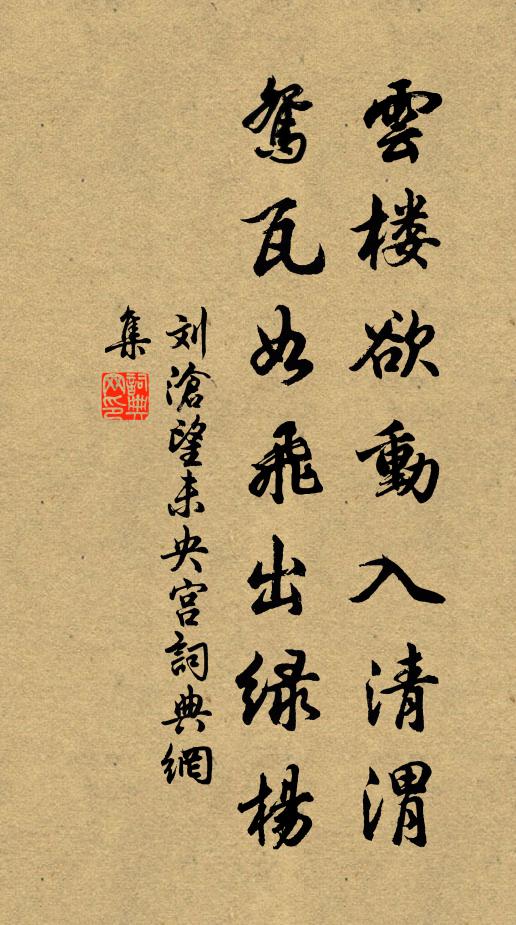 雲楼欲動入清渭
鸳瓦如飛出绿楊
刘滄望未央宫詞典網
集
詞典
网印